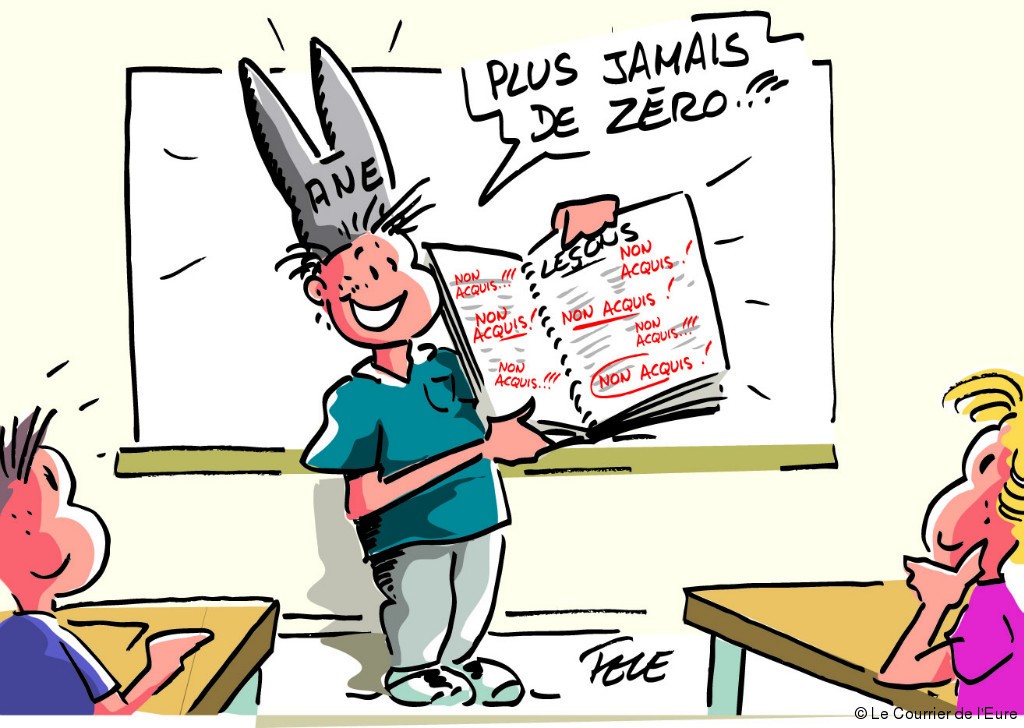 PLUS JAMAIS
DE ZÉRO...!!!
ANE
LESONS
NON
ACQUIS...!!!
NON
ACQUIS!
NON
ACQUIS...!!!
NON
ACQUIS!
NON ACQUIS!
NON
ACQUIS...!!!
NON ACQUIS!
FELE
© Le Courrier de l'Eure